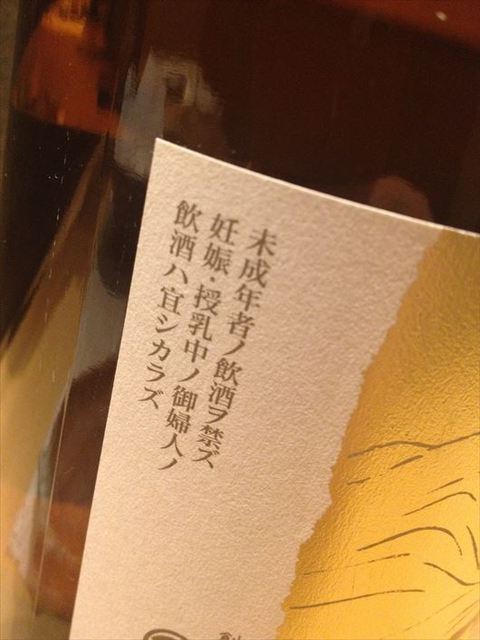 未成年者ノ飲酒ヲ禁ズ
妊娠・授乳中ノ御婦人ノ
飲酒ハ宜シカラズ